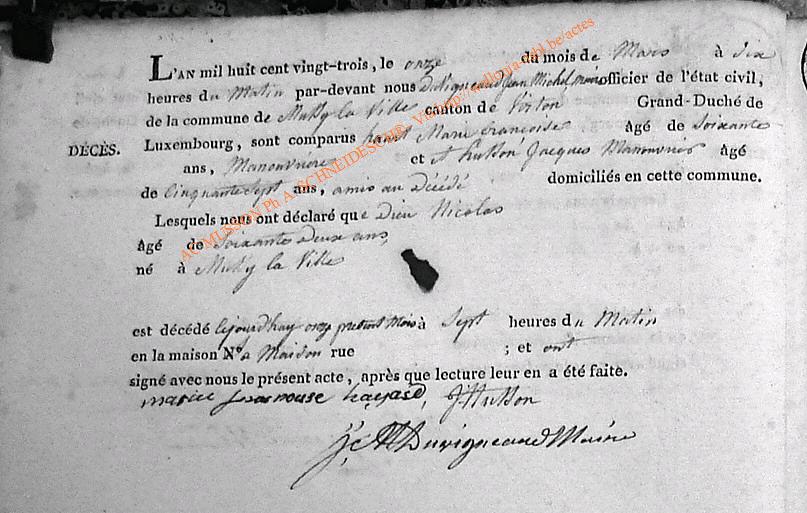 L'AN mil huit cent vingt-trois, le onze du mois de Mars à dix
heures du Matin par-devant nous Duvigneaud Jean Michel, officier de l'état civil,
de la commune de Mussy la Ville canton de Virton Grand-Duché de
DÉCÈS. Luxembourg, sont comparus Marie françoise âgé de Soixante
ans, Manouvrière et Husson Jacques Manouvrier âgé
de Cinquante Sept ans, amis au Décédé domiciliés en cette commune.
Lesquels nous ont déclaré que Dieu Nicolas
âgé de Soixante Deux ans,
né à Mussy la Ville
est décédé cejourdhuy onze présent mois à Sept heures du Matin
en la maison N° a Maison rue ; et ont
signé avec nous le présent acte, après que lecture leur en a été faite.
marie JHusson
Duvigneaud Maire
AC MUSSON Ph A SCHNEIDESCH